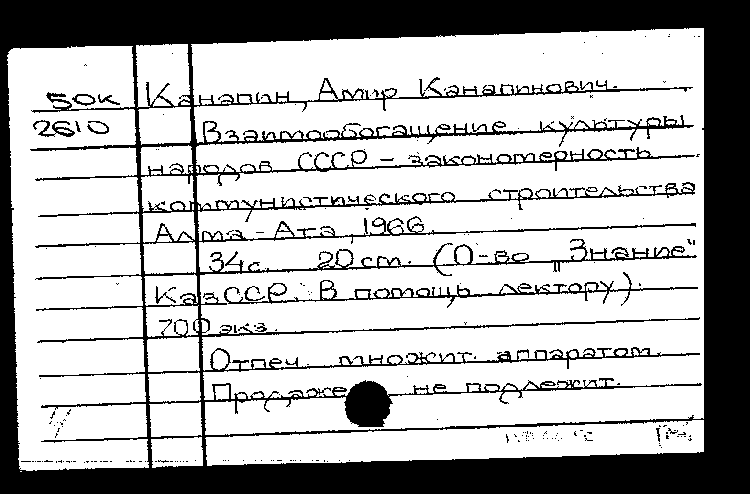 50к Канапин, Амир Канапинович.
2610 Взаимообогащение культуры
народов СССР – закономерность
коммунистического строительства
Алма-Ата, 1966.
34с. 20 cm. (О-во „Знание“
КазССР. В помощь лектору).
700 экз.
Отпеч. множит. аппаратом.
Продаже не подлежит.